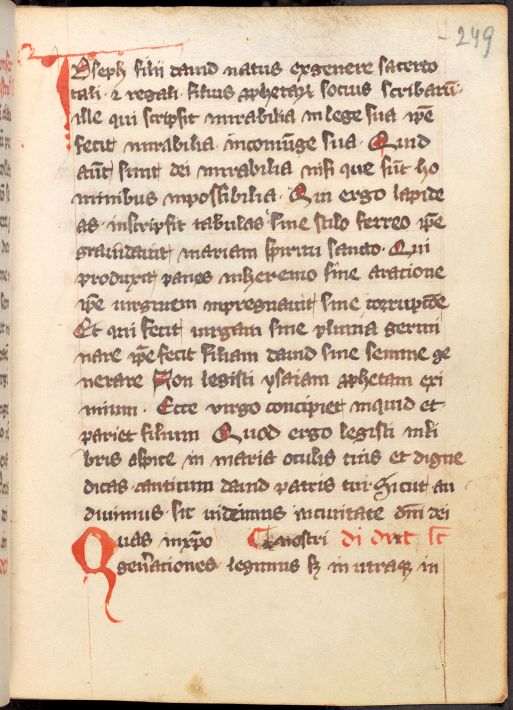 249
Ioseph filii dauid natus ex genere sacerdo
tali · ⁊ regali · filius ꝓphetaꝝ socius scribarū ·
ille qui scripsit mirabilia in lege sua ip̄e
fecit mirabilia · in coniūge sua · Quid
aūt sunt dei mirabilia nisi que sūt ho
minibus inpossibilia · Qui ergo lapide
as · inscripsit tabulas sine stilo ferreo ip̄e
grauidauit mariam spiritu sancto · Qui
produxit panes in heremo sine aratione
ip̄e uirginem inpregnauit sine corrupcōe
Et qui fecit uirgam sine pluuia germi
nare ip̄e fecit filiam dauid sine semine ge
nerare Non legisti ysaiam ꝓphetam exi
mium · Ecce virgo concipiet inquid et
pariet filium Quod ergo legisti in li
bris aspice in maria oculis tuis et digne
dicas · canticum dauid patris tui Sicut au
diuimus · sic uidemus in ciuitate dn̄i dei
Quas in xp̄o nostri
gen̄ationes · legimus sꝫ in utraqꝫ in